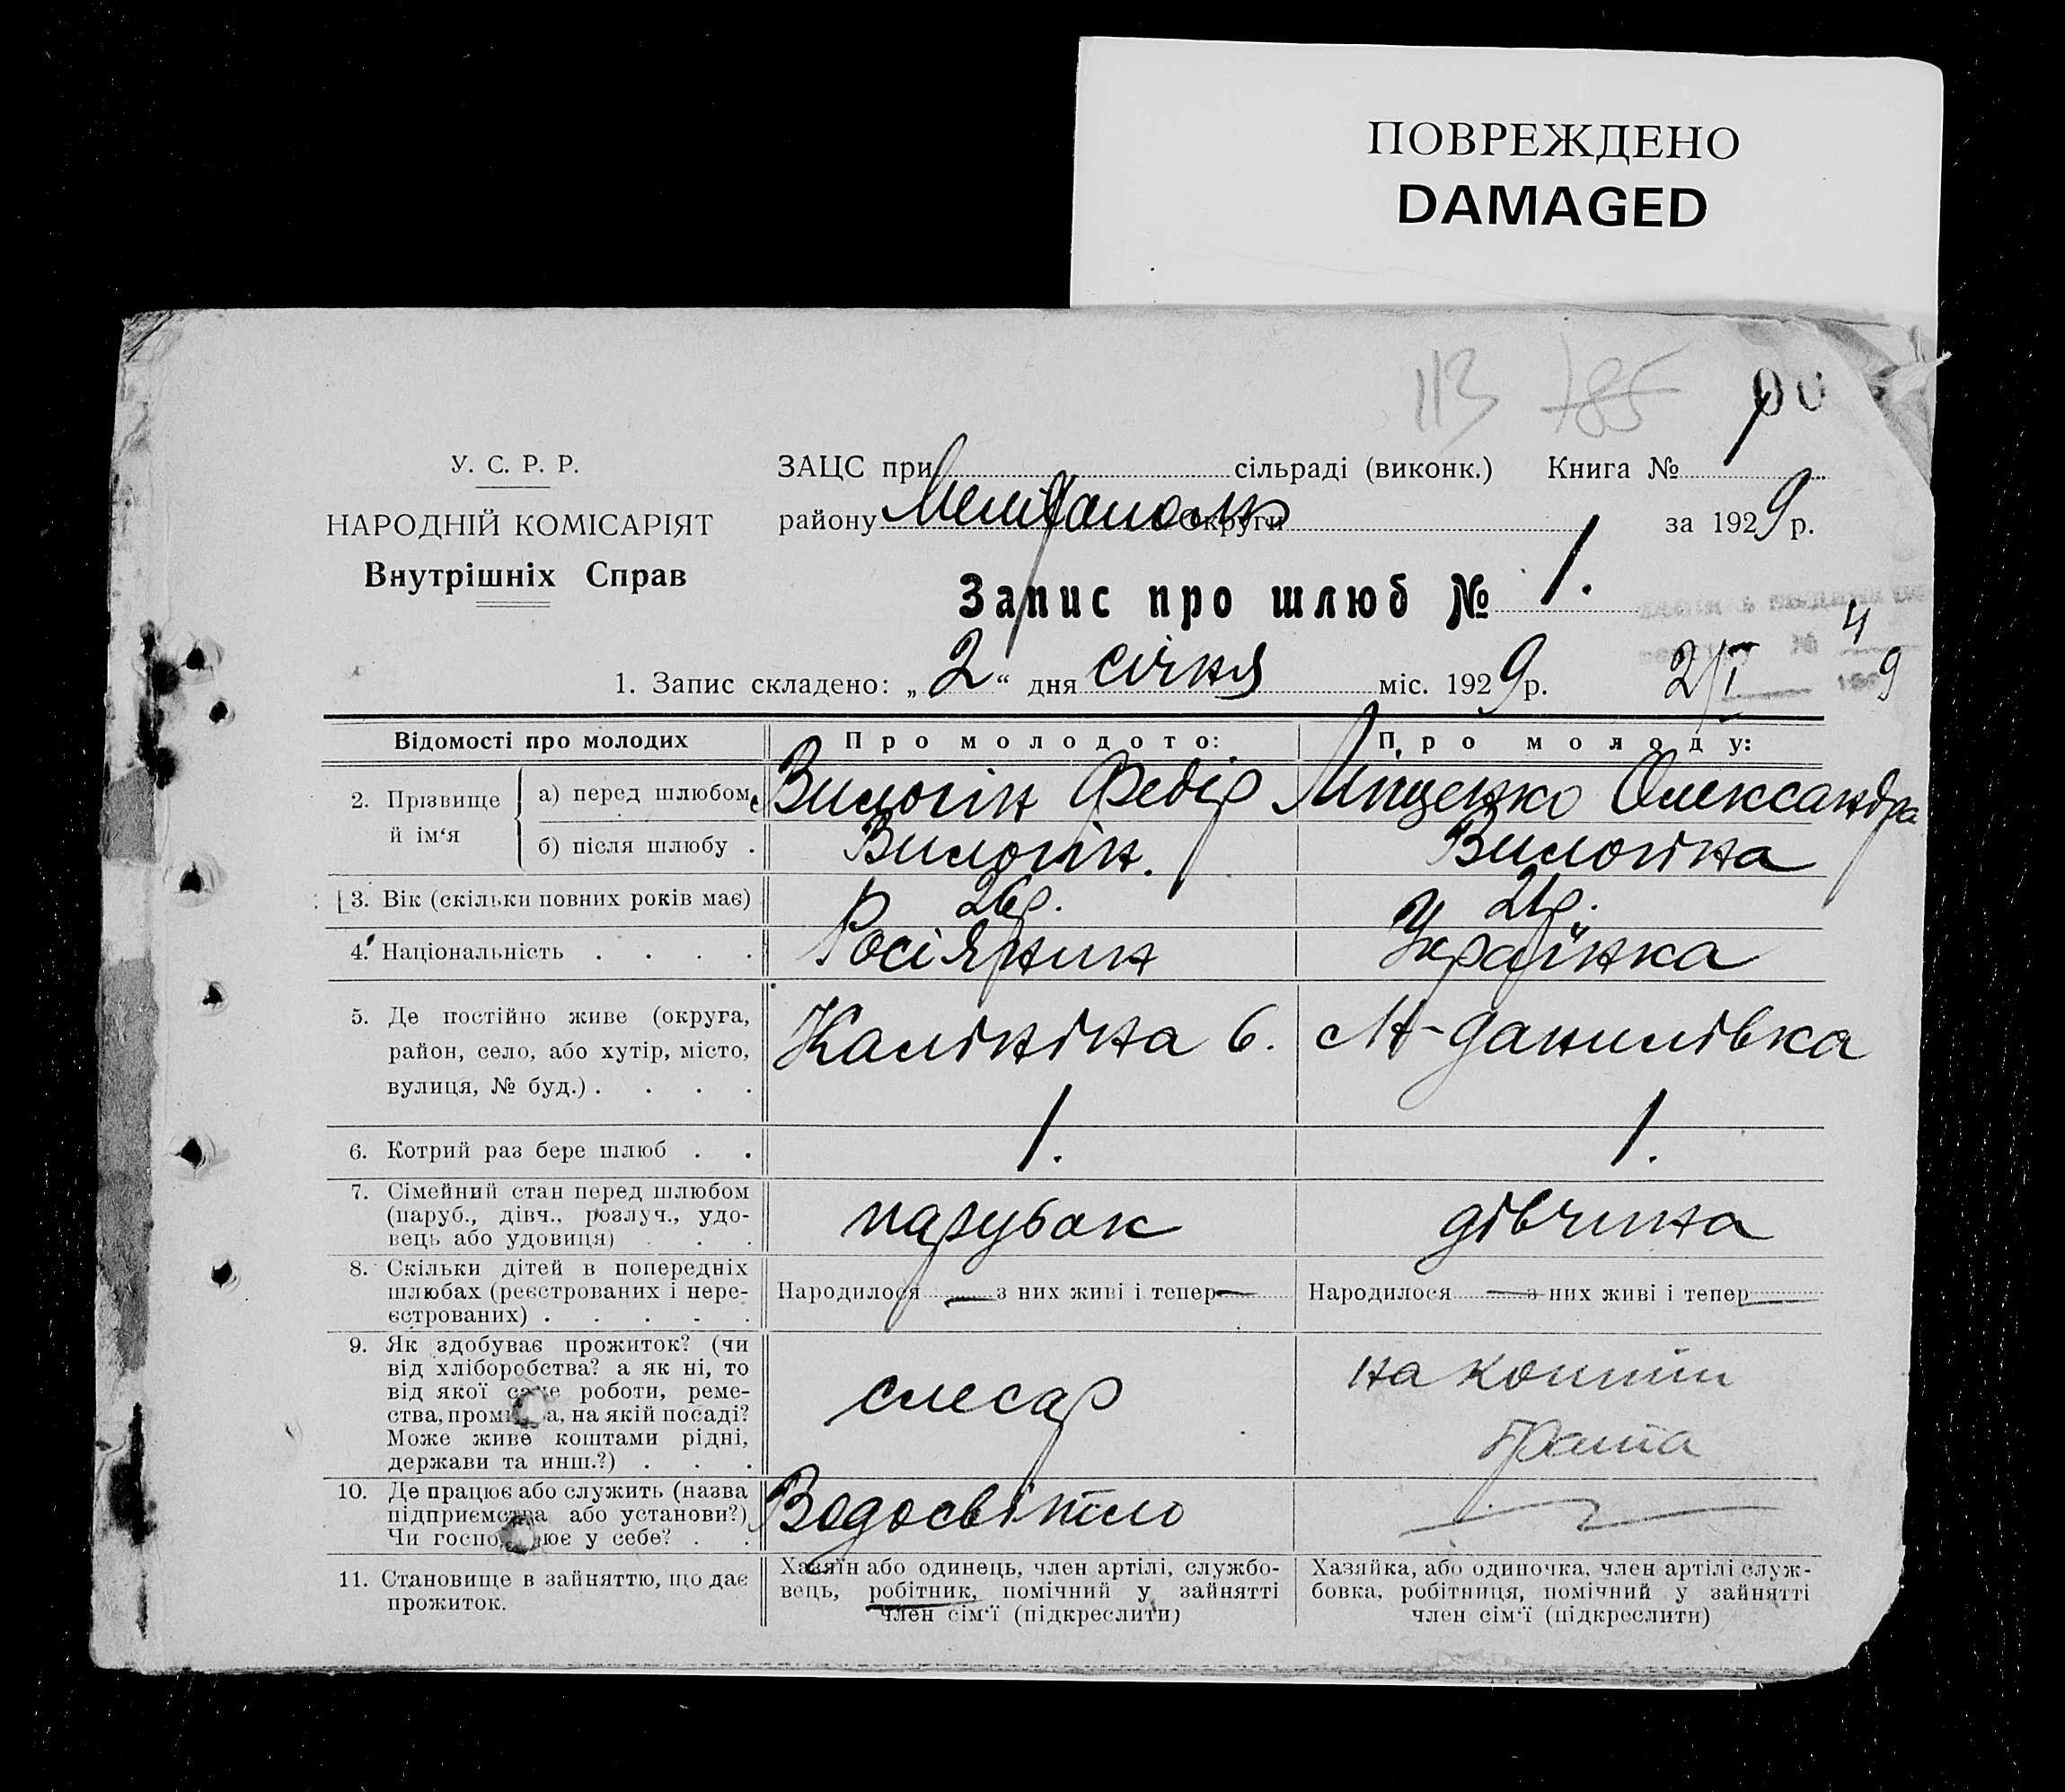 ПОВРЕЖДЕНО
DAMAGED
113 785
У. С. Р. Р.
НАРОДНІЙ КОМІСАРІЯТ
Внутрішніх Справ
ЗАЦС при сільраді (виконк.) Книга №
району Мелітополь округи за 1929 р.
Запис про шлюб № 1.
1. Запис складено: „2“ дня січня міс. 1929 р.
Відомості про молодих
Про молодого:
Про молоду:
2. Прізвище й ім‘я
а) перед шлюбом
Вилогін Федір
Міщенко Олександра
б) після шлюбу .
Вилогін.
Вилогіна
3. Вік (скільки повних років має)
26р.
21р.
4. Національність . . . .
Росіянин
Українка
5. Де постійно живе (округа,
район, село, або хутір, місто,
вулиця, № буд.) . . . .
Калініна 6.
М-Данилівка
6. Котрий раз бере шлюб . .
1.
1.
7. Сімейний стан перед шлюбом
(паруб., дівч., розлуч., удо-
вець або удовиця) . . .
парубок
дівчина
8. Скільки дітей в попередніх
шлюбах (реєстрованих і нере-
єстрованих) . . . . .
Народилося — з них живі і тепер —
Народилося — з них живі і тепер —
9. Як здобуває прожиток? (чи
від хліборобства? а як ні, то
від якої саме роботи, реме-
ства, на якій посаді?
Може живе коштами рідні,
держави та инш.?) . . .
слесар
на кошти
брата
10. Де працює або служить (назва
підприємства або установи?)
Чи у себе? . .
Водосвітло
11. Становище в зайняттю, що дає
прожиток.
Хазяїн або одинець, член артілі, службо-
вець, робітник, помічний у зайнятті
член сім‘ї (підкреслити)
Хазяйка, або одиночка, член артілі служ-
бовка, робітниця, помічний у зайнятті
член сім‘ї (підкреслити)